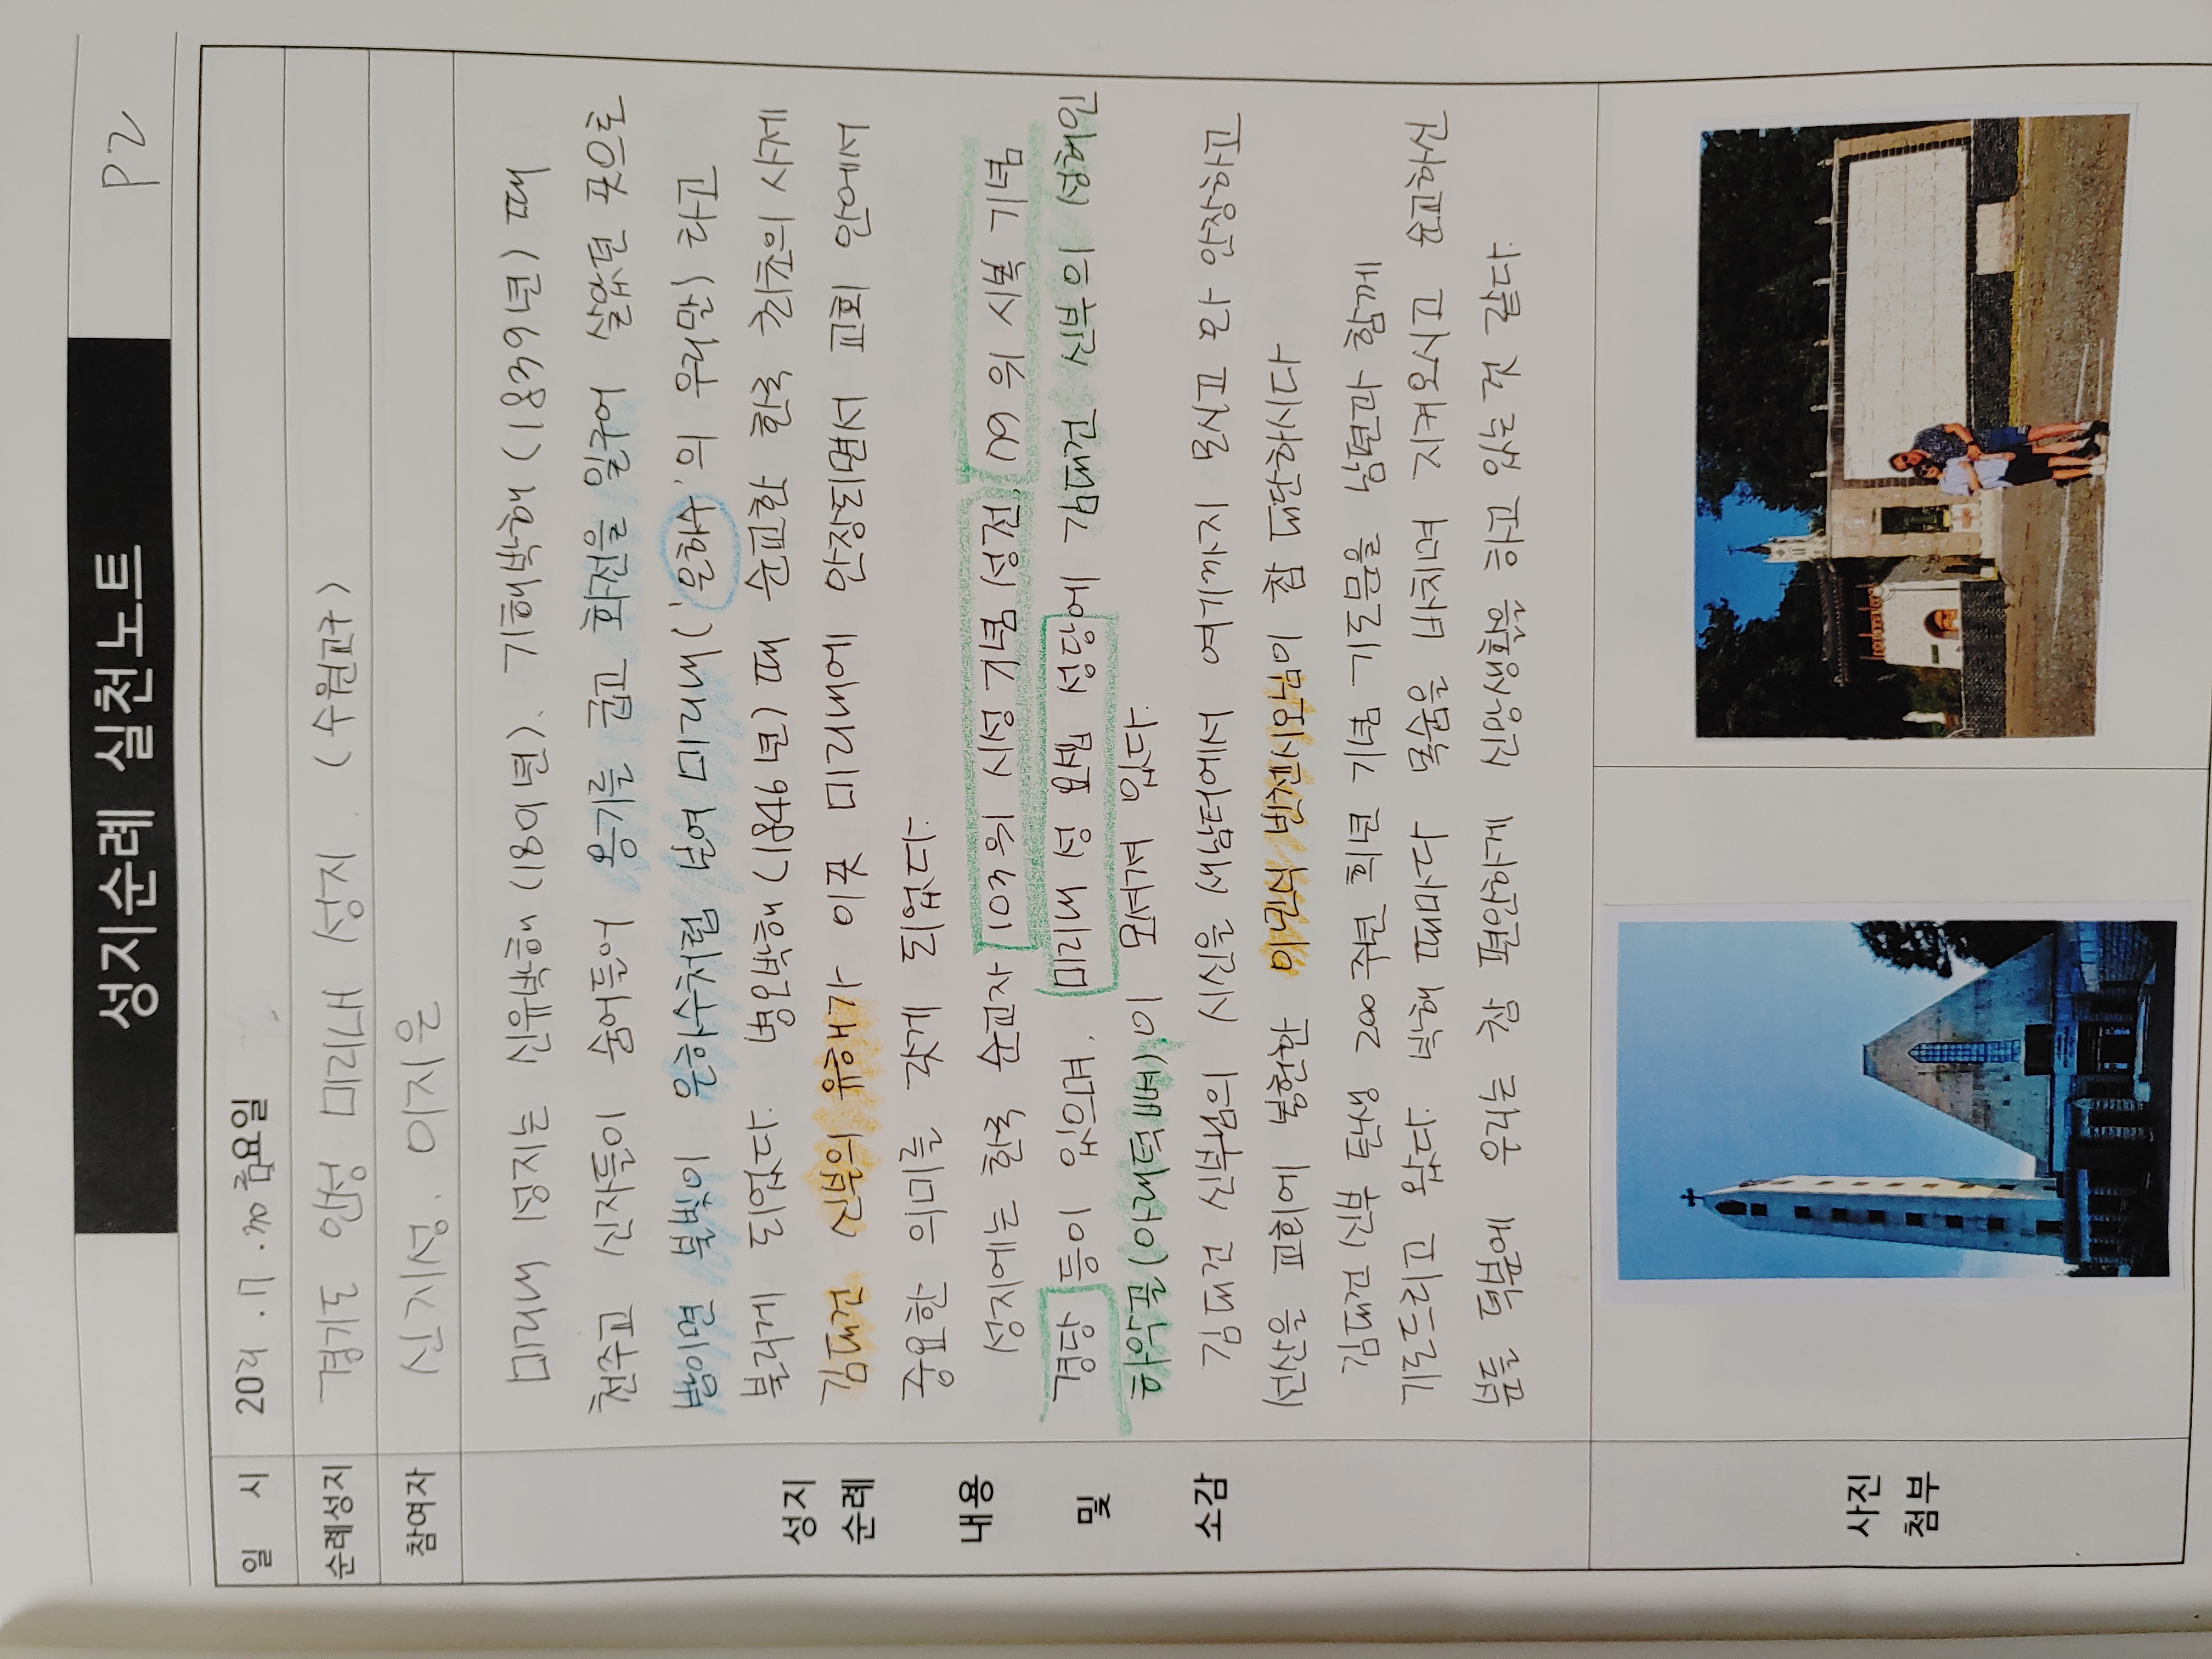 성지순례 실천노트
P2
일 시
2021. 7. 30 금요일
순례성지
경기도 안성 미리내 성지. (수원교구)
참여자
신기성. 이지은
성지
순례
내용
및
소감
미리내 성지는 신유박해 (1801년). 기해박해 (1839년) 때
천주교 신자들이 숨어들어 옹기를 굽고 화전을 일구어 살았던 곳으로
밤이면 불빛이 은하수처럼 보여 미리내 ('은하수'의 우리말) 라고
불리게 되었다. 병오박해 (1846년) 때 순교한 한국 최초의 사제
김대건 신부의 유해가 이곳 미리내에 안장되면서 교회 안에서
중요한 의미를 갖게 되었다.
성지에는 한국 순교자 103위 시성 기념 성전, 79위 시복 기념
경당 등이 있으며, 미리내 성 요셉 성당에 김대건 신부의 성해인
하악골 (아래턱 뼈) 이 모셔져 있다.
김대건 신부님의 시신을 새남터에서 여기까지 모시고 와 안장하고
선산을 교회에 봉헌한 이민식 빈첸시오님이 참 대단하시다
김대건 신부 탄생 200주년 희년 기념 기간으로 남편과 함께
기도드리고 왔다. 박해 때마다 목숨을 바치며 지켜오시고 순교하신
분들 덕분에 우리는 참 편안하게 신앙생활을 하는 것 같다.
사진
첨부